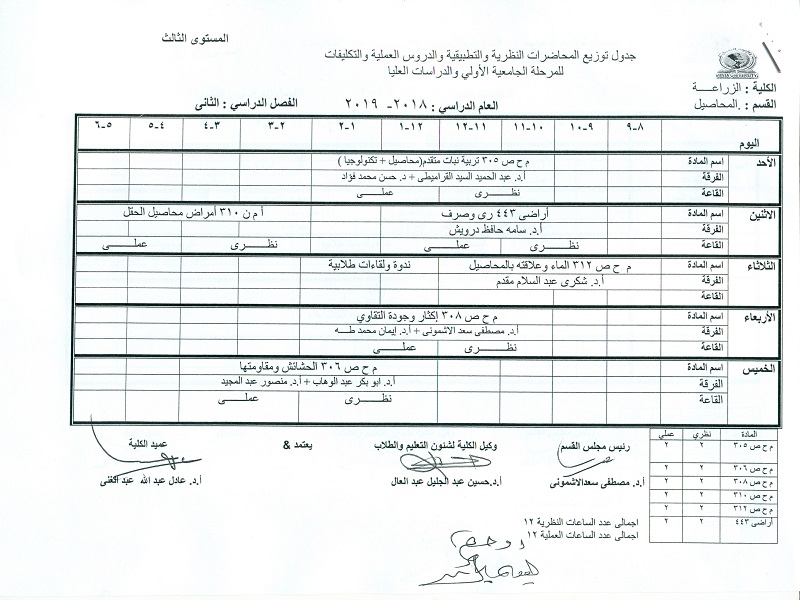 المستوى الثالث
جدول توزيع المحاضرات النظرية والتطبيقية والدروس العملية والتكليفات
للمرحلة الجامعية الأولي والدراسات العليا
الكلية : الزراعــــة
القسم : .المحاصيل
العام الدراسي : ٢٠١٨- ٢٠١٩
الفصل الدراسي : الثانى
اليوم ٨-٩ ٩-١٠ ١٠-١١ ١١-١٢ ١٢-١ ١-٢ ٢-٣ ٣-٤ ٤-٥ ٥-٦
الأحد اسم المادة م ح ص ٣٠٥ تربية نبات متقدم(محاصيل + تكنولوجيا )
الفرقة أ.د. عبد الحميد السيد القراميطى + د. حسن محمد فؤاد
القاعة نظـــرى عملـــى
الاثنين اسم المادة أراضى ٤٤٣ رى وصرف أ م ن ٣١٠ أمراض محاصيل الحقل
الفرقة أ.د. سامه حافظ درويش
القاعة نظـــرى عملـــى نظـــرى عملـــى
الثلاثاء اسم المادة م ح ص ٣١٢ الماء وعلاقته بالمحاصيل ندوة ولقاءات طلابية
الفرقة أ.د. شكرى عبد السلام مقدم
القاعة
الأربعاء اسم المادة م ح ص ٣٠٨ إكثار وجودة التقاوي
الفرقة أ.د. مصطفى سعد الاشمونى + أ.د. إيمان محمد طـــه
القاعة نظـــرى عملـــى
الخميس اسم المادة م ح ص ٣٠٦ الحشائش ومقاومتها
الفرقة أ.د. ابو بكر عبد الوهاب + أ.د. منصور عبد المجيد
القاعة نظـــرى عملـــى
المادة نظري عملي
م ح ص ٣٠٥ ٢ ٢
م ح ص ٣٠٦ ٢ ٢
م ح ص ٣٠٨ ٢ ٢
م ح ص ٣١٠ ٢ ٢
م ح ص ٣١٢ ٢ ٢
أراضى ٤٤٣ ٢ ٢
رئيس مجلس القسم وكيل الكلية لشئون التعليم والطلاب يعتمد & عميد الكلية
أ.د. مصطفى سعدالاشمونى أ.د.حسين عبد الجليل عبد العال أ.د. عادل عبد الله عبد الغنى
اجمالى عدد الساعات النظرية ١٢
اجمالى عدد الساعات العملية ١٢